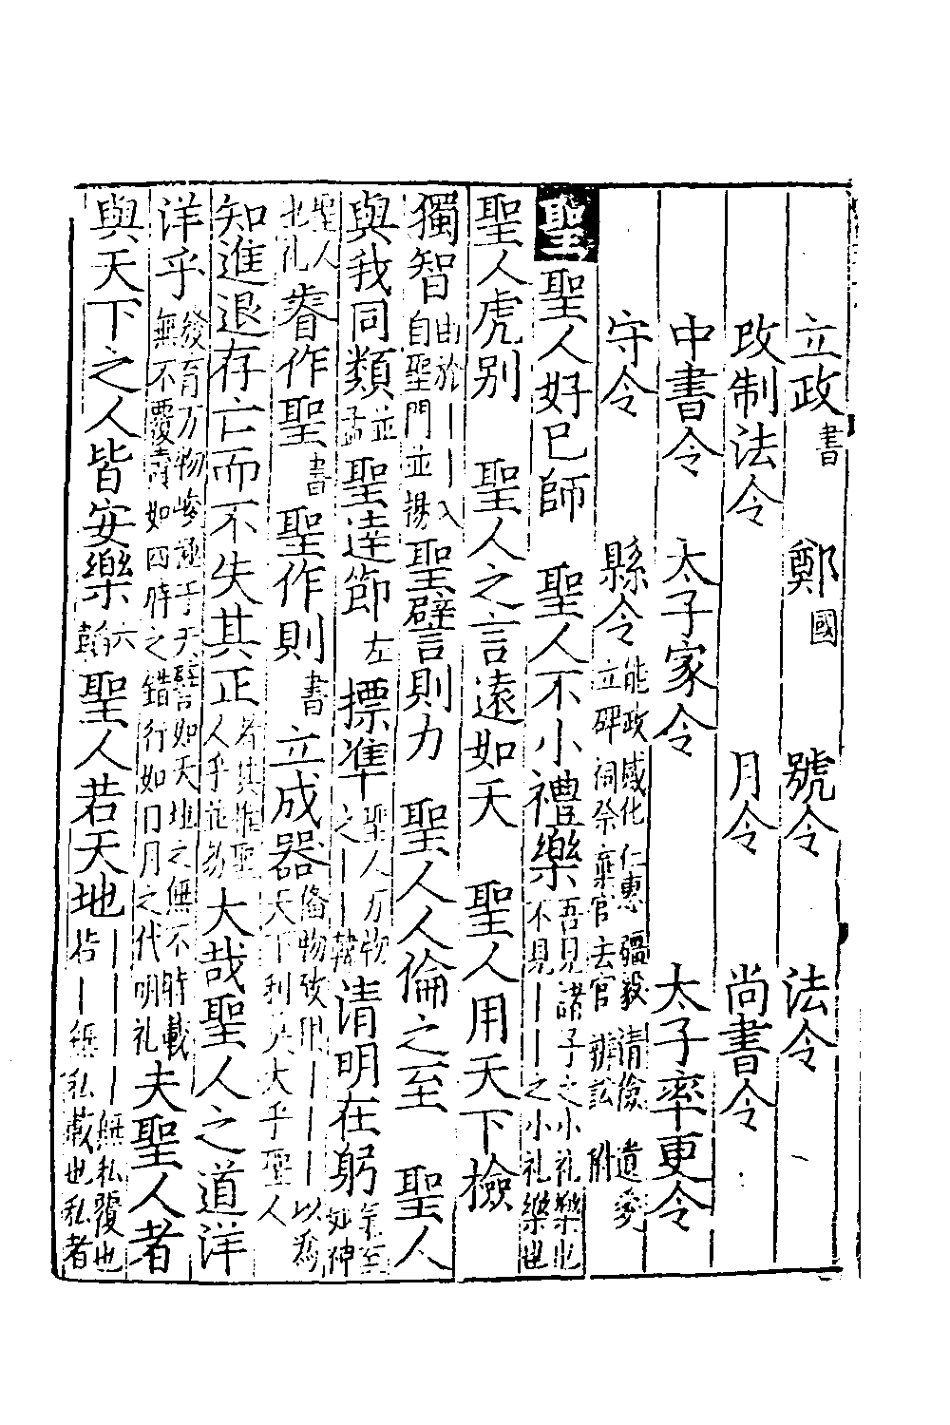 立政書 鄭國 號令 法令
改制法令 月令 尚書令
中書令 太子家令 太子率更令
守令 縣令能政感化仁惠彊毅請儉遺愛立碑祠祭棄官去官辨訟附
聖聖人好已師 聖人不小禮樂吾見諸子之小礼樂也不見｜｜之小礼樂也
聖人虎别 聖人之言遠如天 聖人用天下檢
獨智由於｜｜入自聖門並揚 聖譬則力 聖人人倫之至 聖人
與我同類並孟 聖達節左 摽準聖人万物之｜｜韓 清明在躬氣至如神
聖人也礼 睿作聖書 聖作則書 立成器俻物致用｜｜｜以爲天下利莫大乎聖人
知進退存亡而不失其正者其惟聖人乎 大哉聖人之道洋
洋乎發育万物峻極于天譬如天地之無不持載無不覆幬如四時之錯行如日月之代明礼 夫聖人者
與天下之人皆安樂六韜 聖人若天地｜｜｜｜無私覆也｜無私載也私者